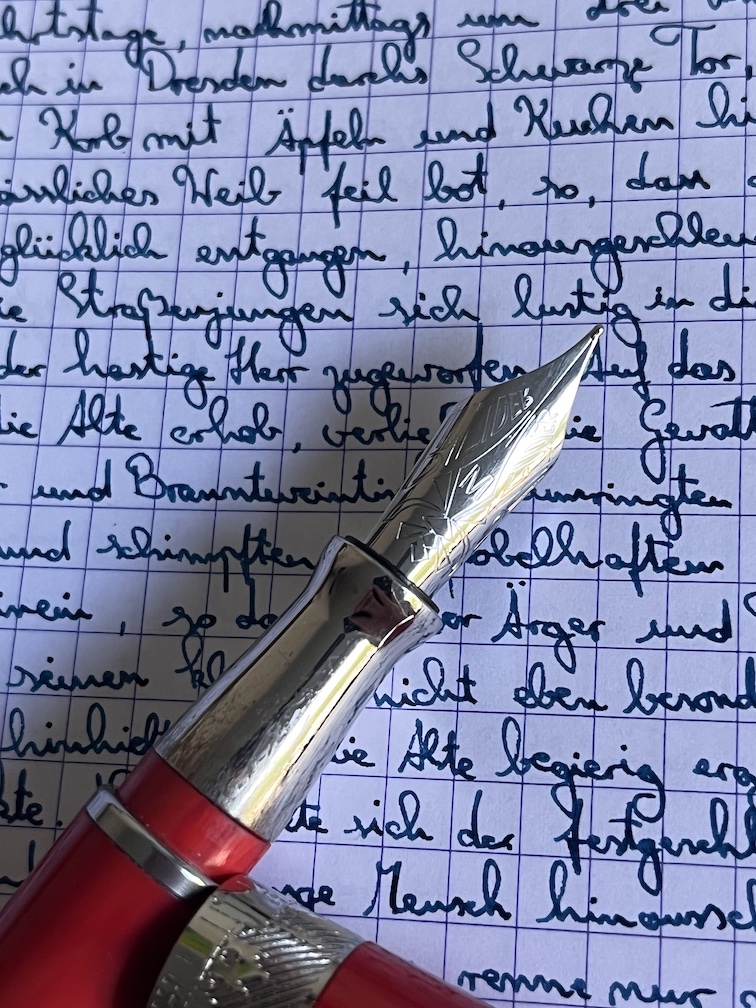 hrtstage, nachmittags um drei
ch in Dresden durchs Schwarze Tor,
Korb mit Äpfeln und Kuchen hi
ässliches Weib feil bot, so, dass
glücklich entgangen, hinausgeschleu
ie Straßenjungen sich lustig in di
der hastige Herr zugeworfen Auf das
die Alte erhob, verlie ie Gevatt
und Branntweintis umringten
und schimpften öbelhaften
inein, so da or Ärger und
seinen kl nicht eben besond
hinhielt ie Alte begierig erg
kte. te sich der festgeschl
nge Mensch hinaussch
renne nur